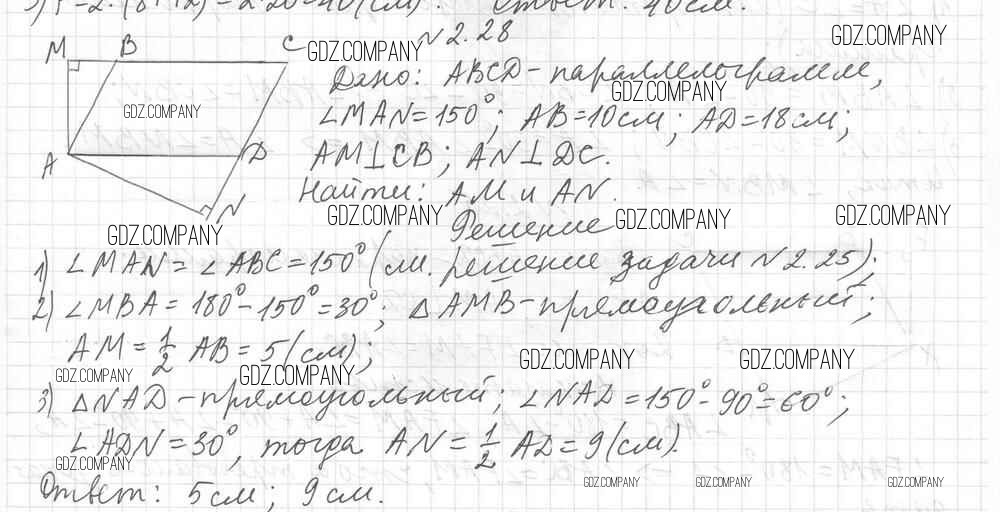 3) P = 2·(8+12) = 2·20 = 40(см). Ответ: 40см.
N 2.28
M B C GDZ.COMPANY GDZ.COMPANY
Дано: ABCD - параллелограмм,
GDZ.COMPANY GDZ.COMPANY
∠MAN = 150°; AB = 10см; AD = 18см;
A D AM⊥CB; AN⊥DC.
Найти: AM и AN.
N GDZ.COMPANY GDZ.COMPANY GDZ.COMPANY
GDZ.COMPANY Решение
1) ∠MAN = ∠ABC = 150° (см. решение задачи N 2.25);
2) ∠MBA = 180° - 150° = 30°; △AMB - прямоугольный;
AM = 1/2 AB = 5(см);
GDZ.COMPANY GDZ.COMPANY GDZ.COMPANY GDZ.COMPANY
3) △NAD - прямоугольный; ∠NAD = 150° - 90° = 60°;
∠ADN = 30°, тогда AN = 1/2 AD = 9(см).
GDZ.COMPANY
Ответ: 5см; 9см.
GDZ.COMPANY GDZ.COMPANY GDZ.COMPANY